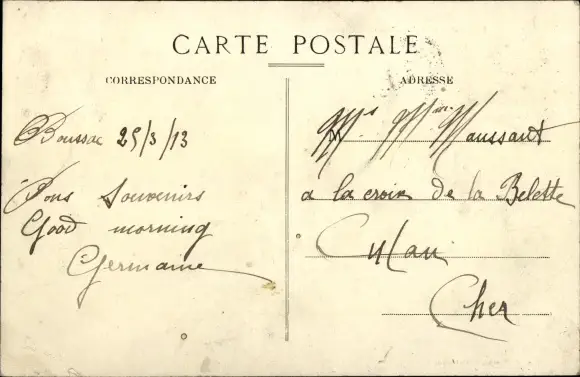 CARTE POSTALE
CORRESPONDANCE
ADRESSE
Boussac 25/3/13
Bons Souvenirs
Good morning
Germaine
Mrs Mme Maussant
a la croix de la Belette
Culan
Cher